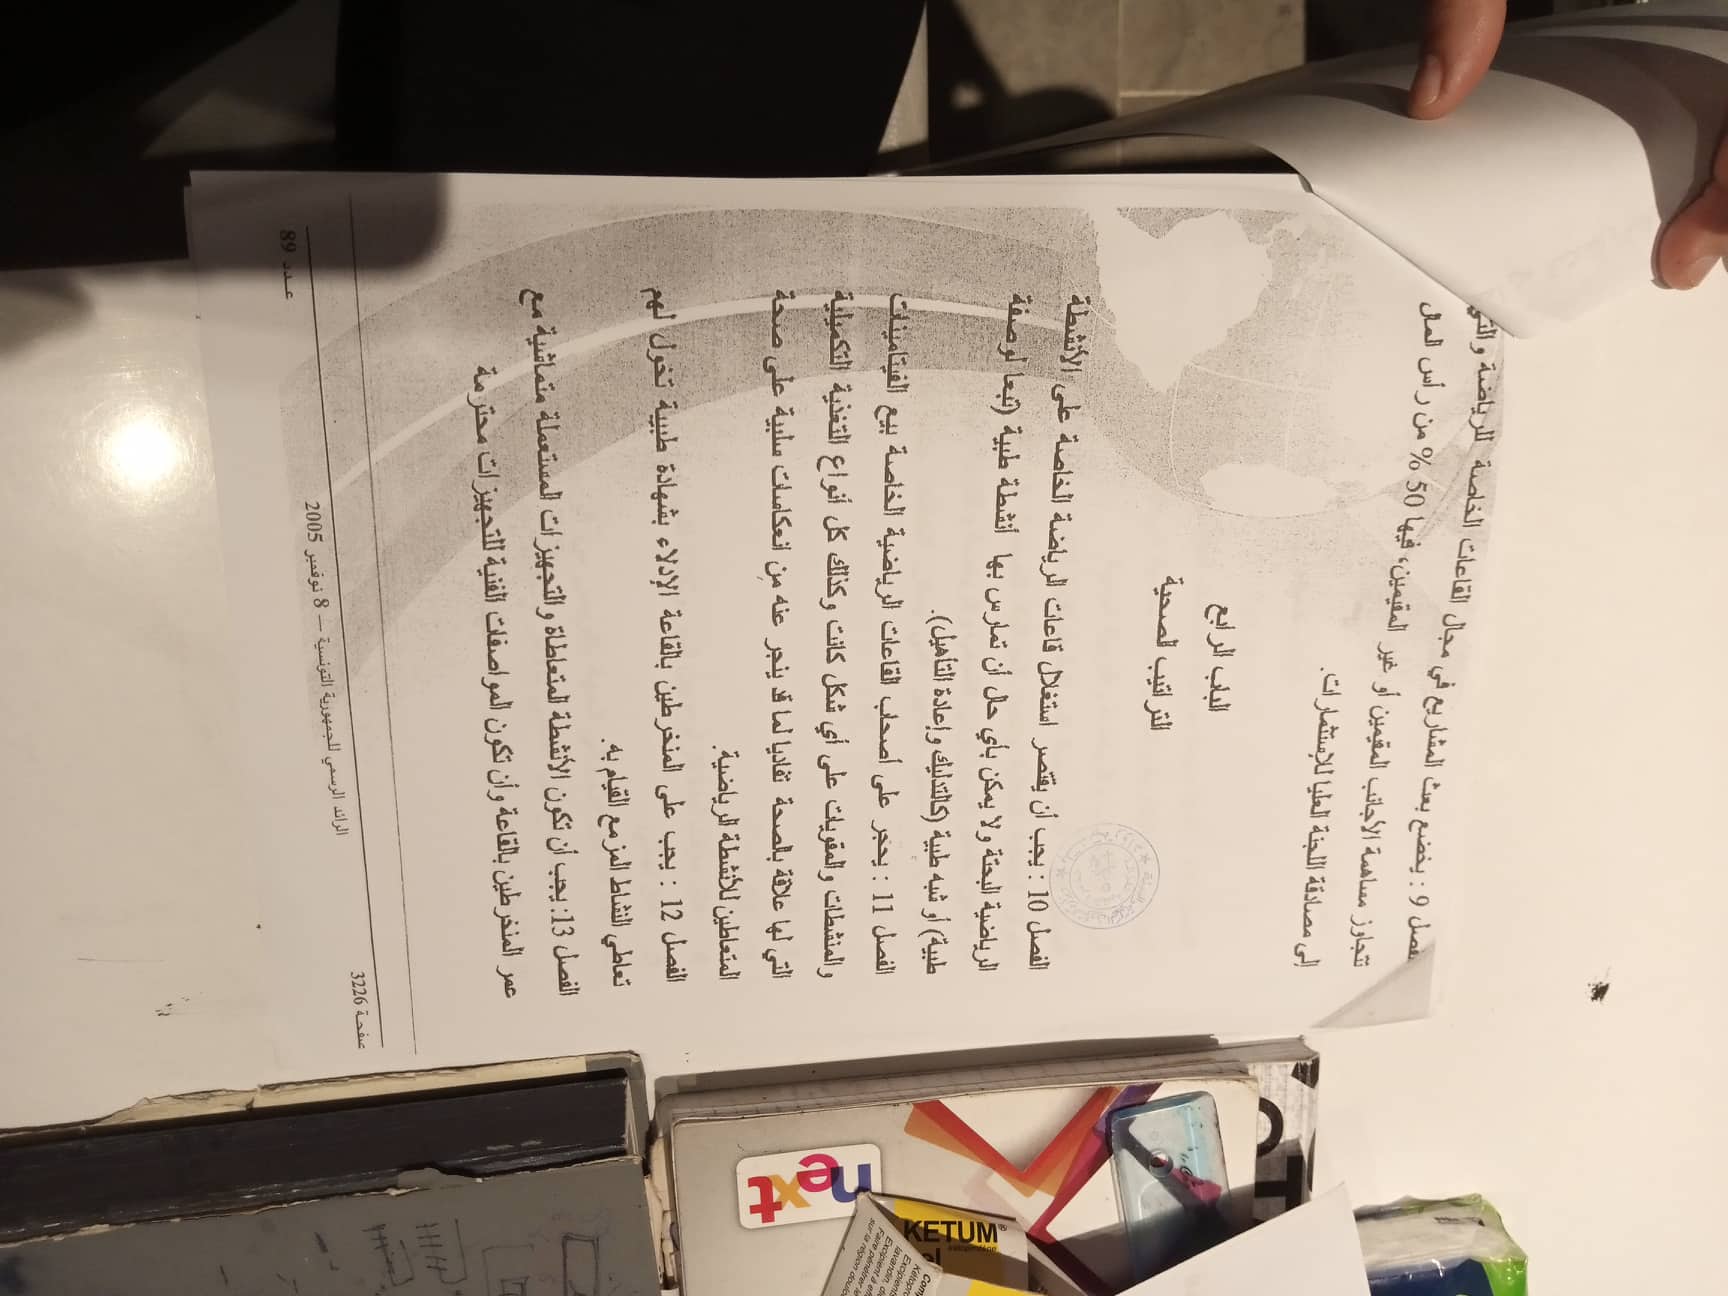 في مجال القاعات الخاصة للرياضة والتي
فصل 9 : يخضع بعث المشاريع
تتجاوز مساهمة الأجانب المقيمين أو غير المقيمين، فيها 50 % من رأس المال
إلى مصادقة اللجنة العليا للإستثمارات.
الباب الرابع
التراتيب الصحية
الفصل 10 : يجب أن يقتصر استغلال قاعات الرياضة الخاصة على الأنشطة
الرياضية البحتة ولا يمكن بأي حال أن تمارس بها أنشطة طبية (تبعا لوصفة
طبية) أو شبه طبية (كالتدليك وإعادة التأهيل).
الفصل 11 : يحجر على أصحاب القاعات الرياضية الخاصة بيع الفيتامينات
والمنشطات والمقويات على أي شكل كانت وكذلك كل أنواع التغذية التكميلية
التي لها علاقة بالصحة تفاديا لما قد ينجر عنه من انعكاسات سلبية على صحة
المتعاطين للأنشطة الرياضية.
الفصل 12 : يجب على المنخرطين بالقاعة الإدلاء بشهادة طبية تخول لهم
تعاطي النشاط المزمع القيام به.
الفصل 13: يجب أن تكون الأنشطة المتعاطاة والتجهيزات المستعملة متماشية مع
عمر المنخرطين بالقاعة وأن تكون المواصفات الفنية للتجهيزات محترمة
صفحة 3226
الرائد الرسمي للجمهورية التونسية — 8 نوفمبر 2005
عدد 89
next
KETUM®